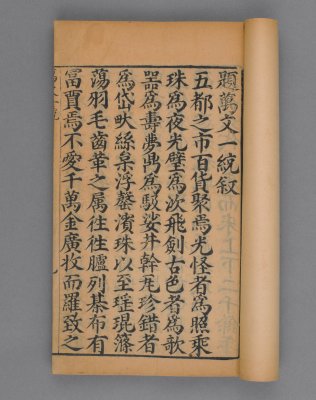 題萬文一統叙
五都之市百貨聚焉光怪者爲照乘
珠爲夜光璧爲次飛劍古色者爲欹
器爲壽夢鼎爲馺娑井幹凡珍錯者
爲岱畎絲枲浮磬濱珠以至瑶琨篠
蕩羽毛齒革之属往往臚列棊布有
富賈焉不愛千萬金廣收而羅致之